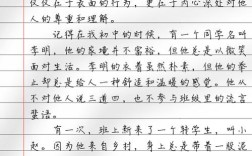 仅仅在于表面的行为，更在于内心深处对他
人的尊重和理解。
记得在我初中的时候，有一个同学名叫
李明，他的家境并不富裕，但他总是以微笑
面对生活。李明的衣着虽然朴素，但他的举
止却总是给人一种舒适和温暖的感觉。他从
不对他人说三道四，也不参与班级里的流言
蜚语。
有一次，班上新来了一个转学生，叫小
赵。因为他来自乡村，身上总是带着一股泥